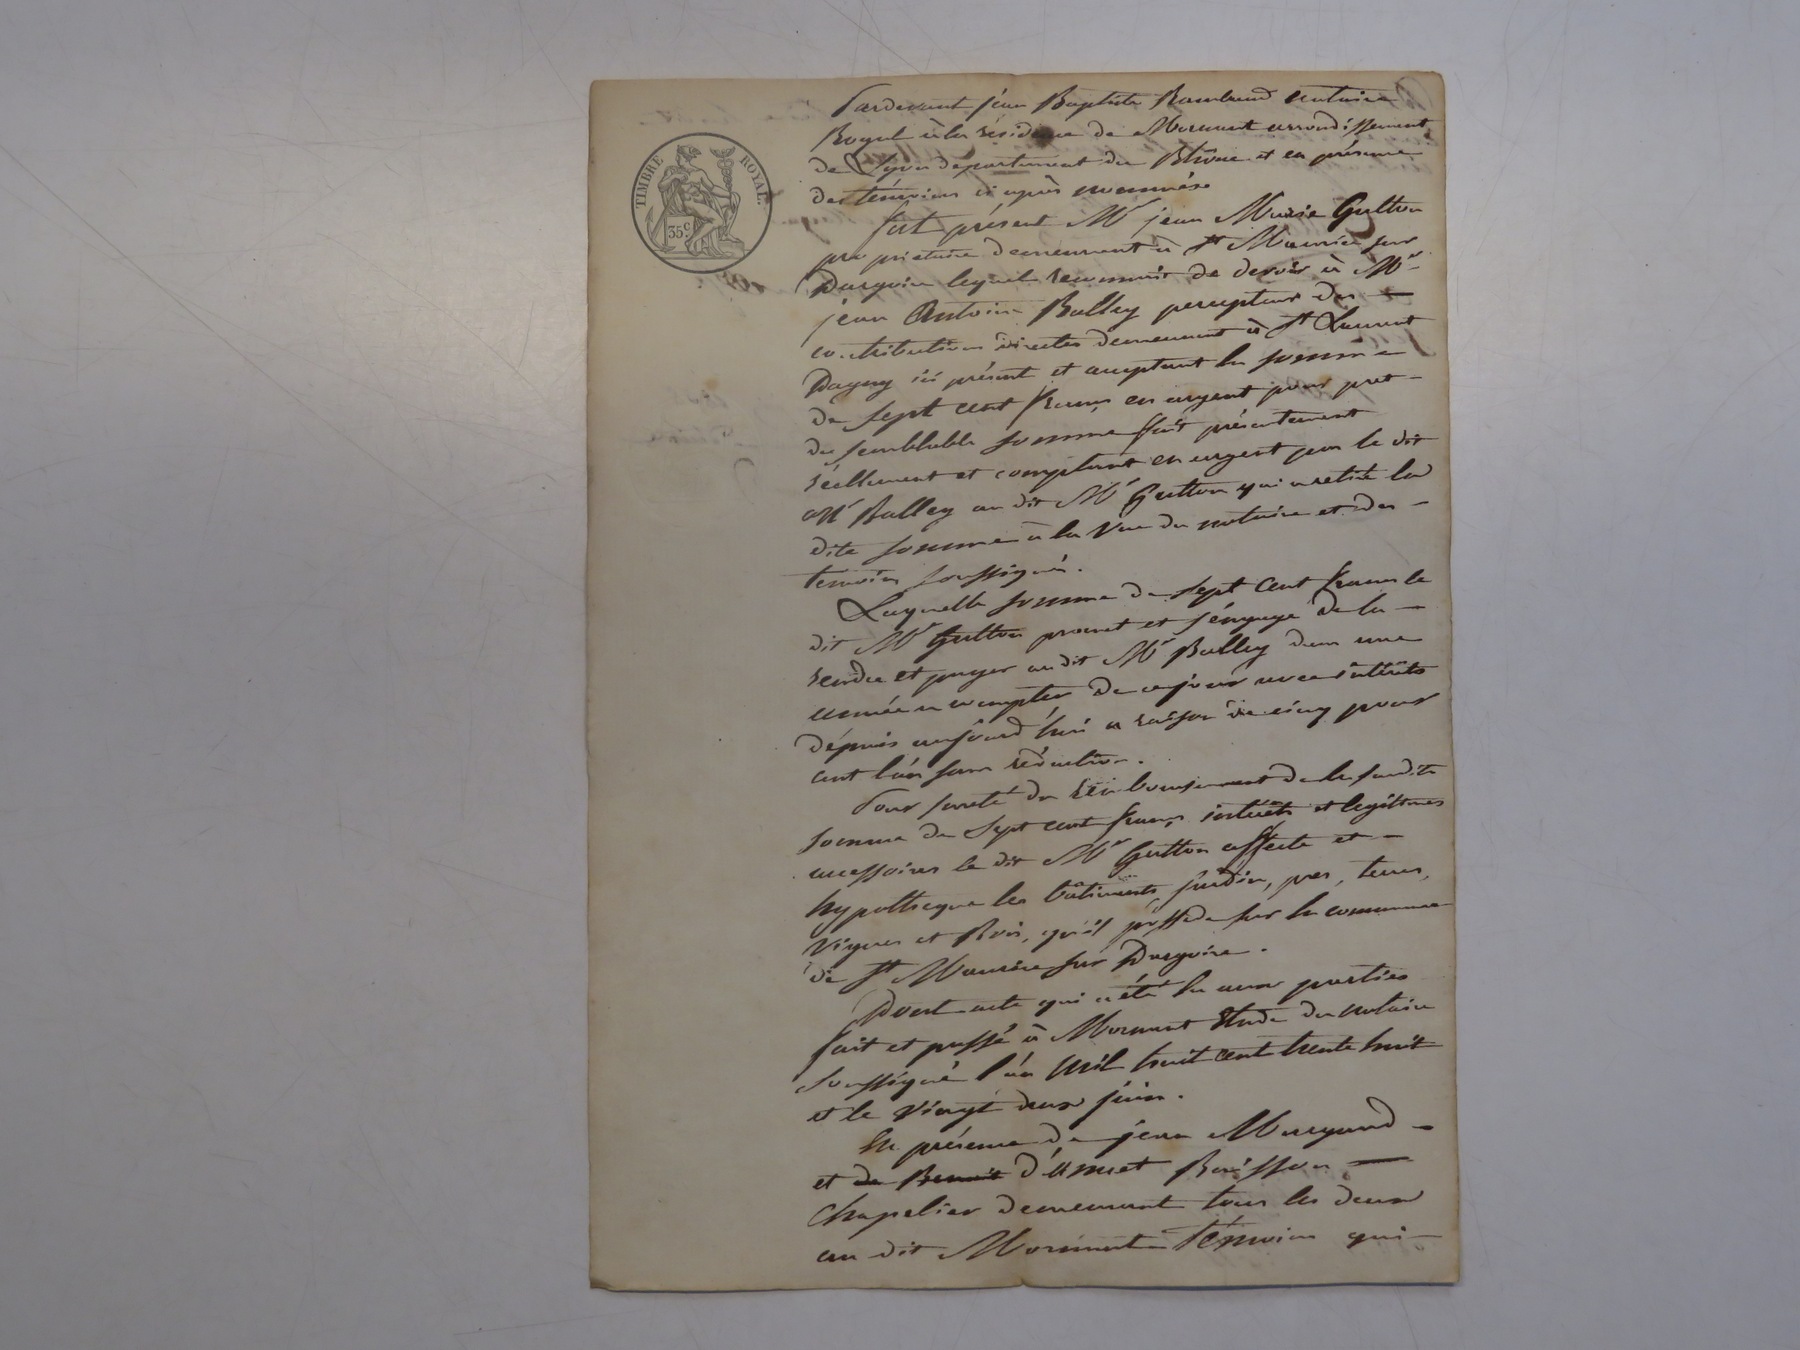 TIMBRE ROYAL.
35c.
Pardevant jean Baptiste Rambaud notaire
Royal à la résidence de Mornant arrondissement
de Lyon departement du Rhône et en présence
des témoins ci après nommés
fut présent Mr jean Marie Gutton
propriétaire demeurant à St Maurice sur
Dargoire lequel reconnait de devoir à Mr
jean Antoine Balley percepteur des
contributions directes demeurant à St Laurent
Dagny ici présent et acceptant la somme
de sept cent francs en argent pour pret
de semblable somme fait présentement
réellement et comptant en argent par le dit
Mr Balley au dit Mr Gutton qui a retiré la
dite somme à la vue du notaire et des
témoins soussignés.
Laquelle somme de sept cent francs le
dit Mr Gutton promet et s'engage de la
rendre et payer au dit Mr Balley dans une
année a compter de ce jour avec intérêts
dépuis aujourd'hui a raison de cinq pour
cent l'an sans réduction.
Pour sureté du remboursement de la susdite
somme de sept cent francs, intérêts et legitimes
accessoires le dit Mr Gutton affecte et
hypotheque les bâtiments, jardin, pres, terres,
vignes et Bois, qu'il possede sur la commune
de St Maurice sur Dargoire.
Dont acte qui a été lu aux parties
fait et passé à Mornant Etude du notaire
soussigné l'an mil huit cent trente huit
et le vingt deux juin.
En présence de jean
et de Benoit d'Esmet Boisson
Chapelier demeurant tous les deux
au dit Mornant Témoins qui